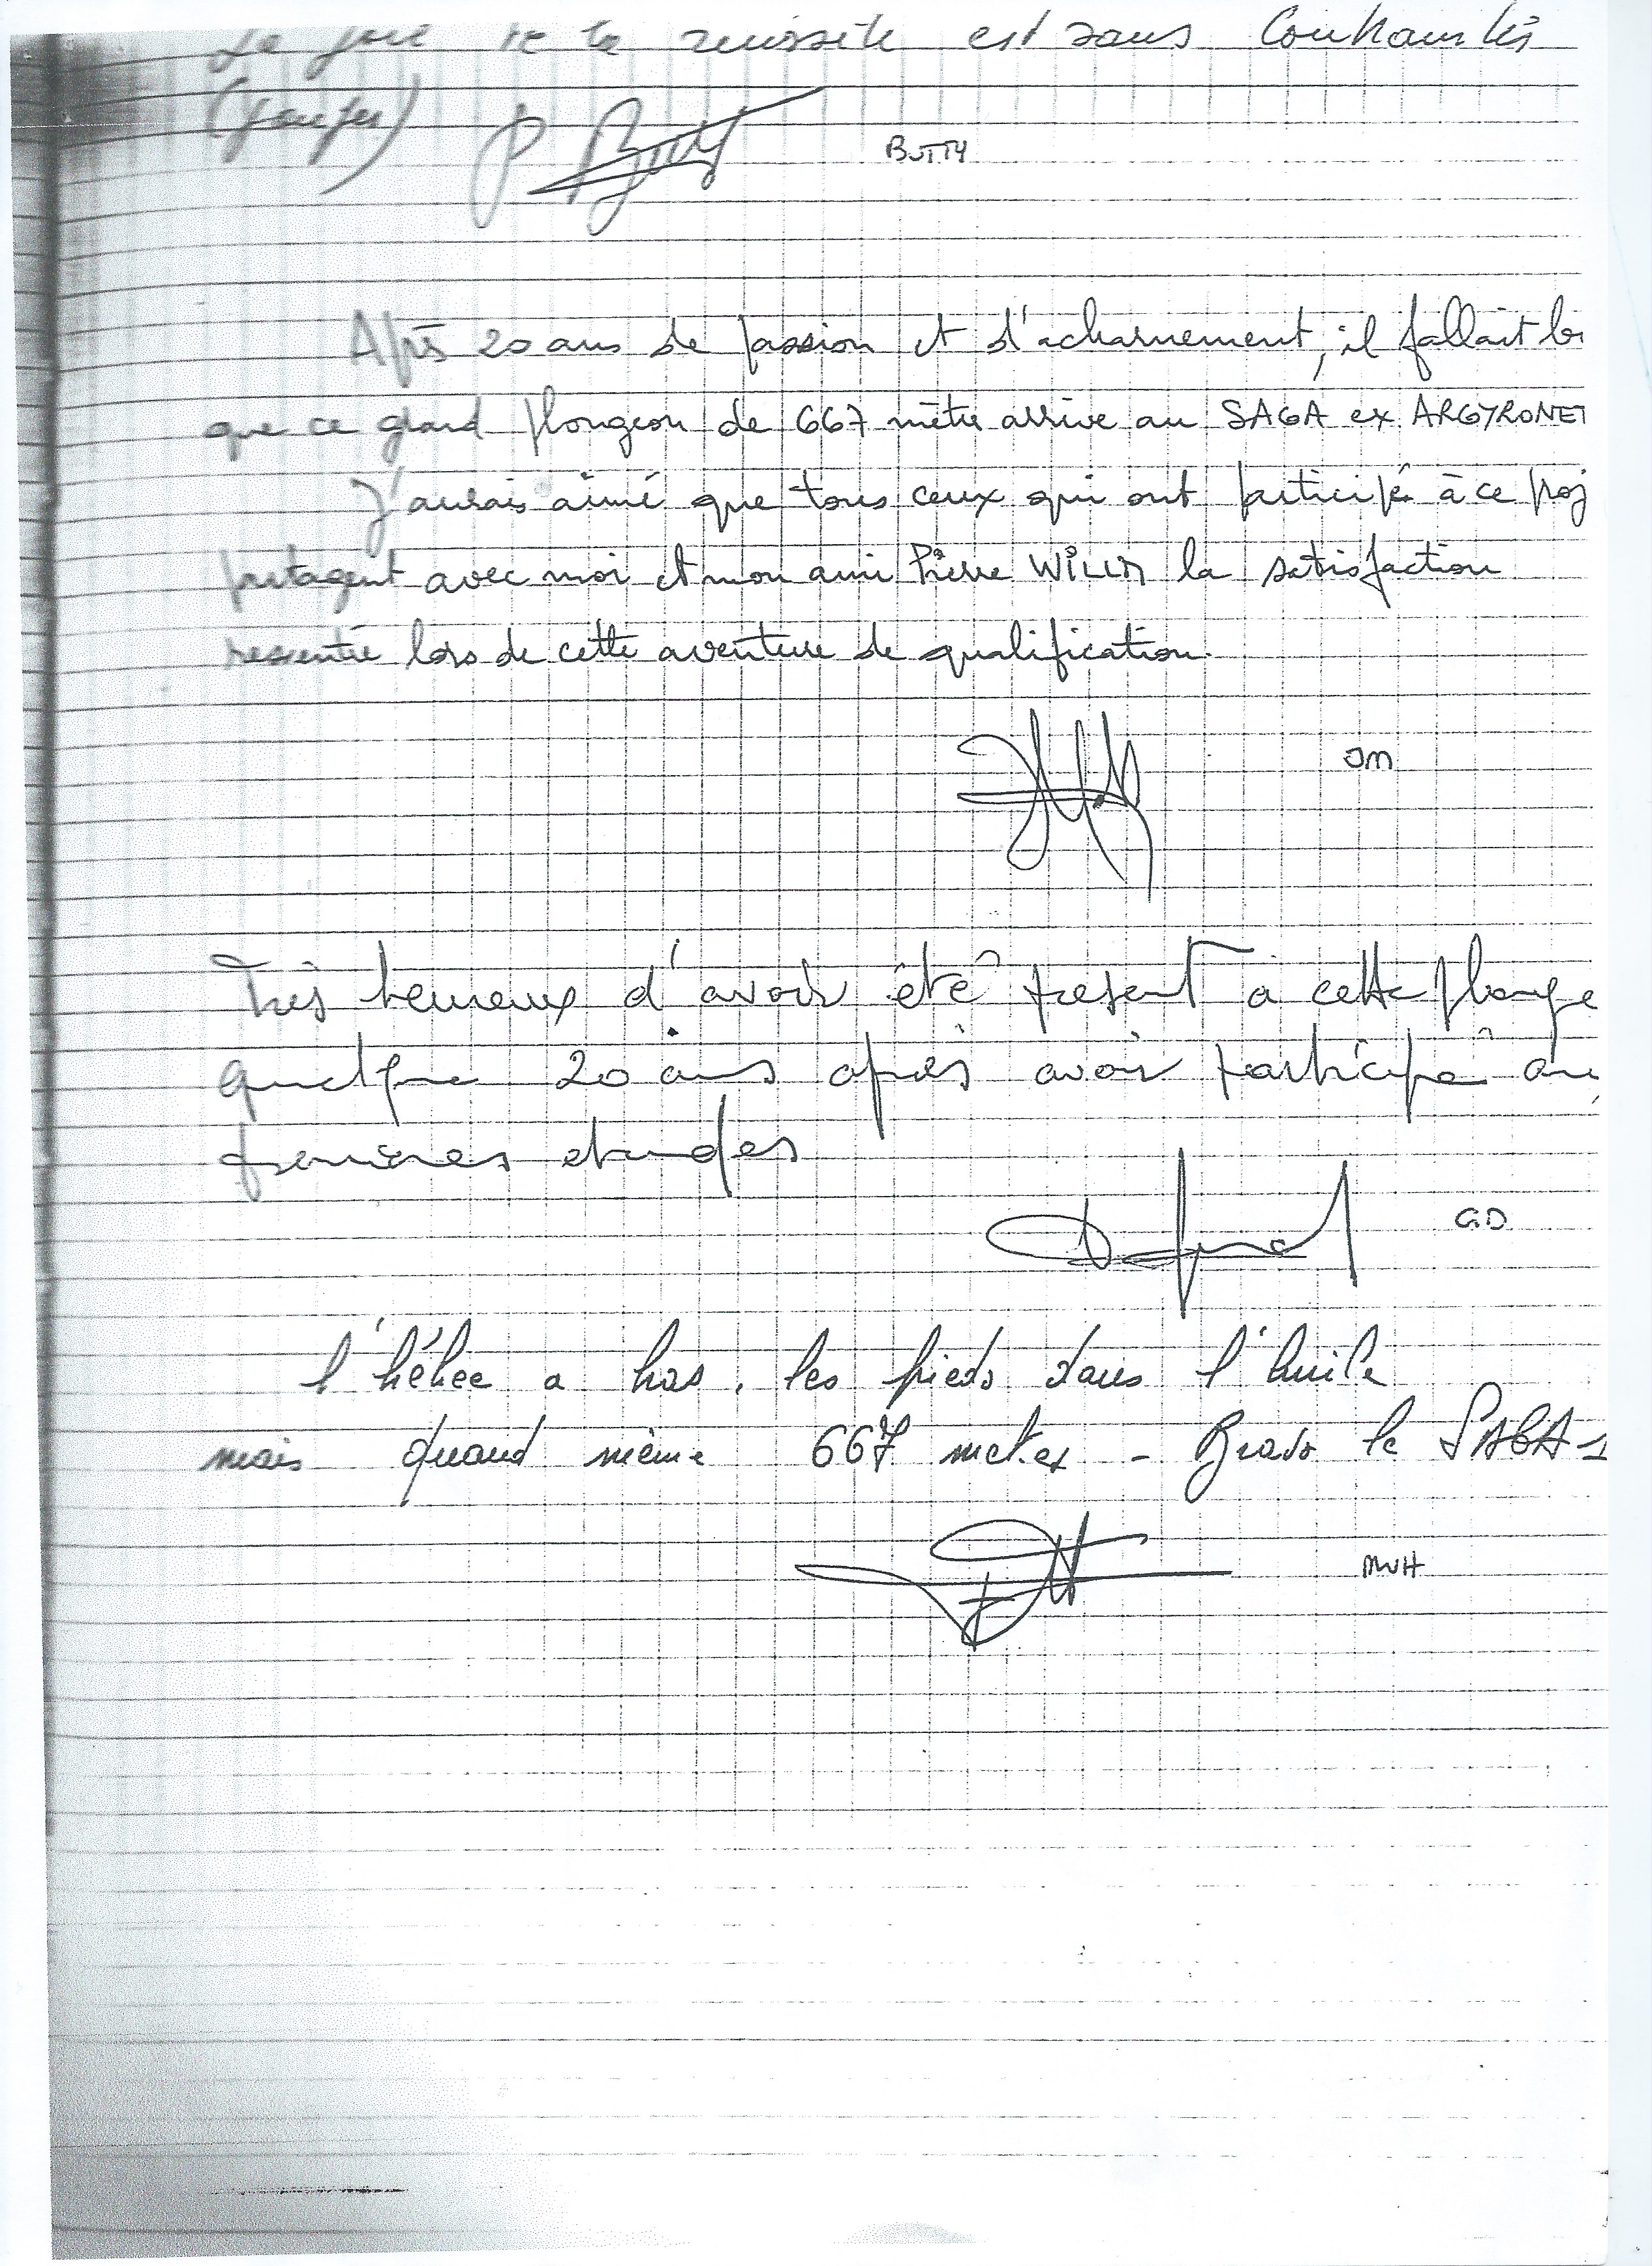 La joie de la réussite est sans
P. Butty BUTTY
Après 20 ans de passion et d'acharnement, il fallait bi
que ce grand plongeon de 667 mètre arrive au SAGA ex ARGYRONET
J'aurais aimé que tous ceux qui ont participé à ce proj
partagent avec moi et mon ami Pierre WILLM la satisfaction
ressentie lors de cette aventure de qualification.
JM
Très heureux d'avoir été présent à cette plongé
quelque 20 ans après avoir participé au
premières etudes
G.D
l'hélice a bas. les pieds dans l'huile
mais quand même 667 metres - Bravo le SAGA -
MVH